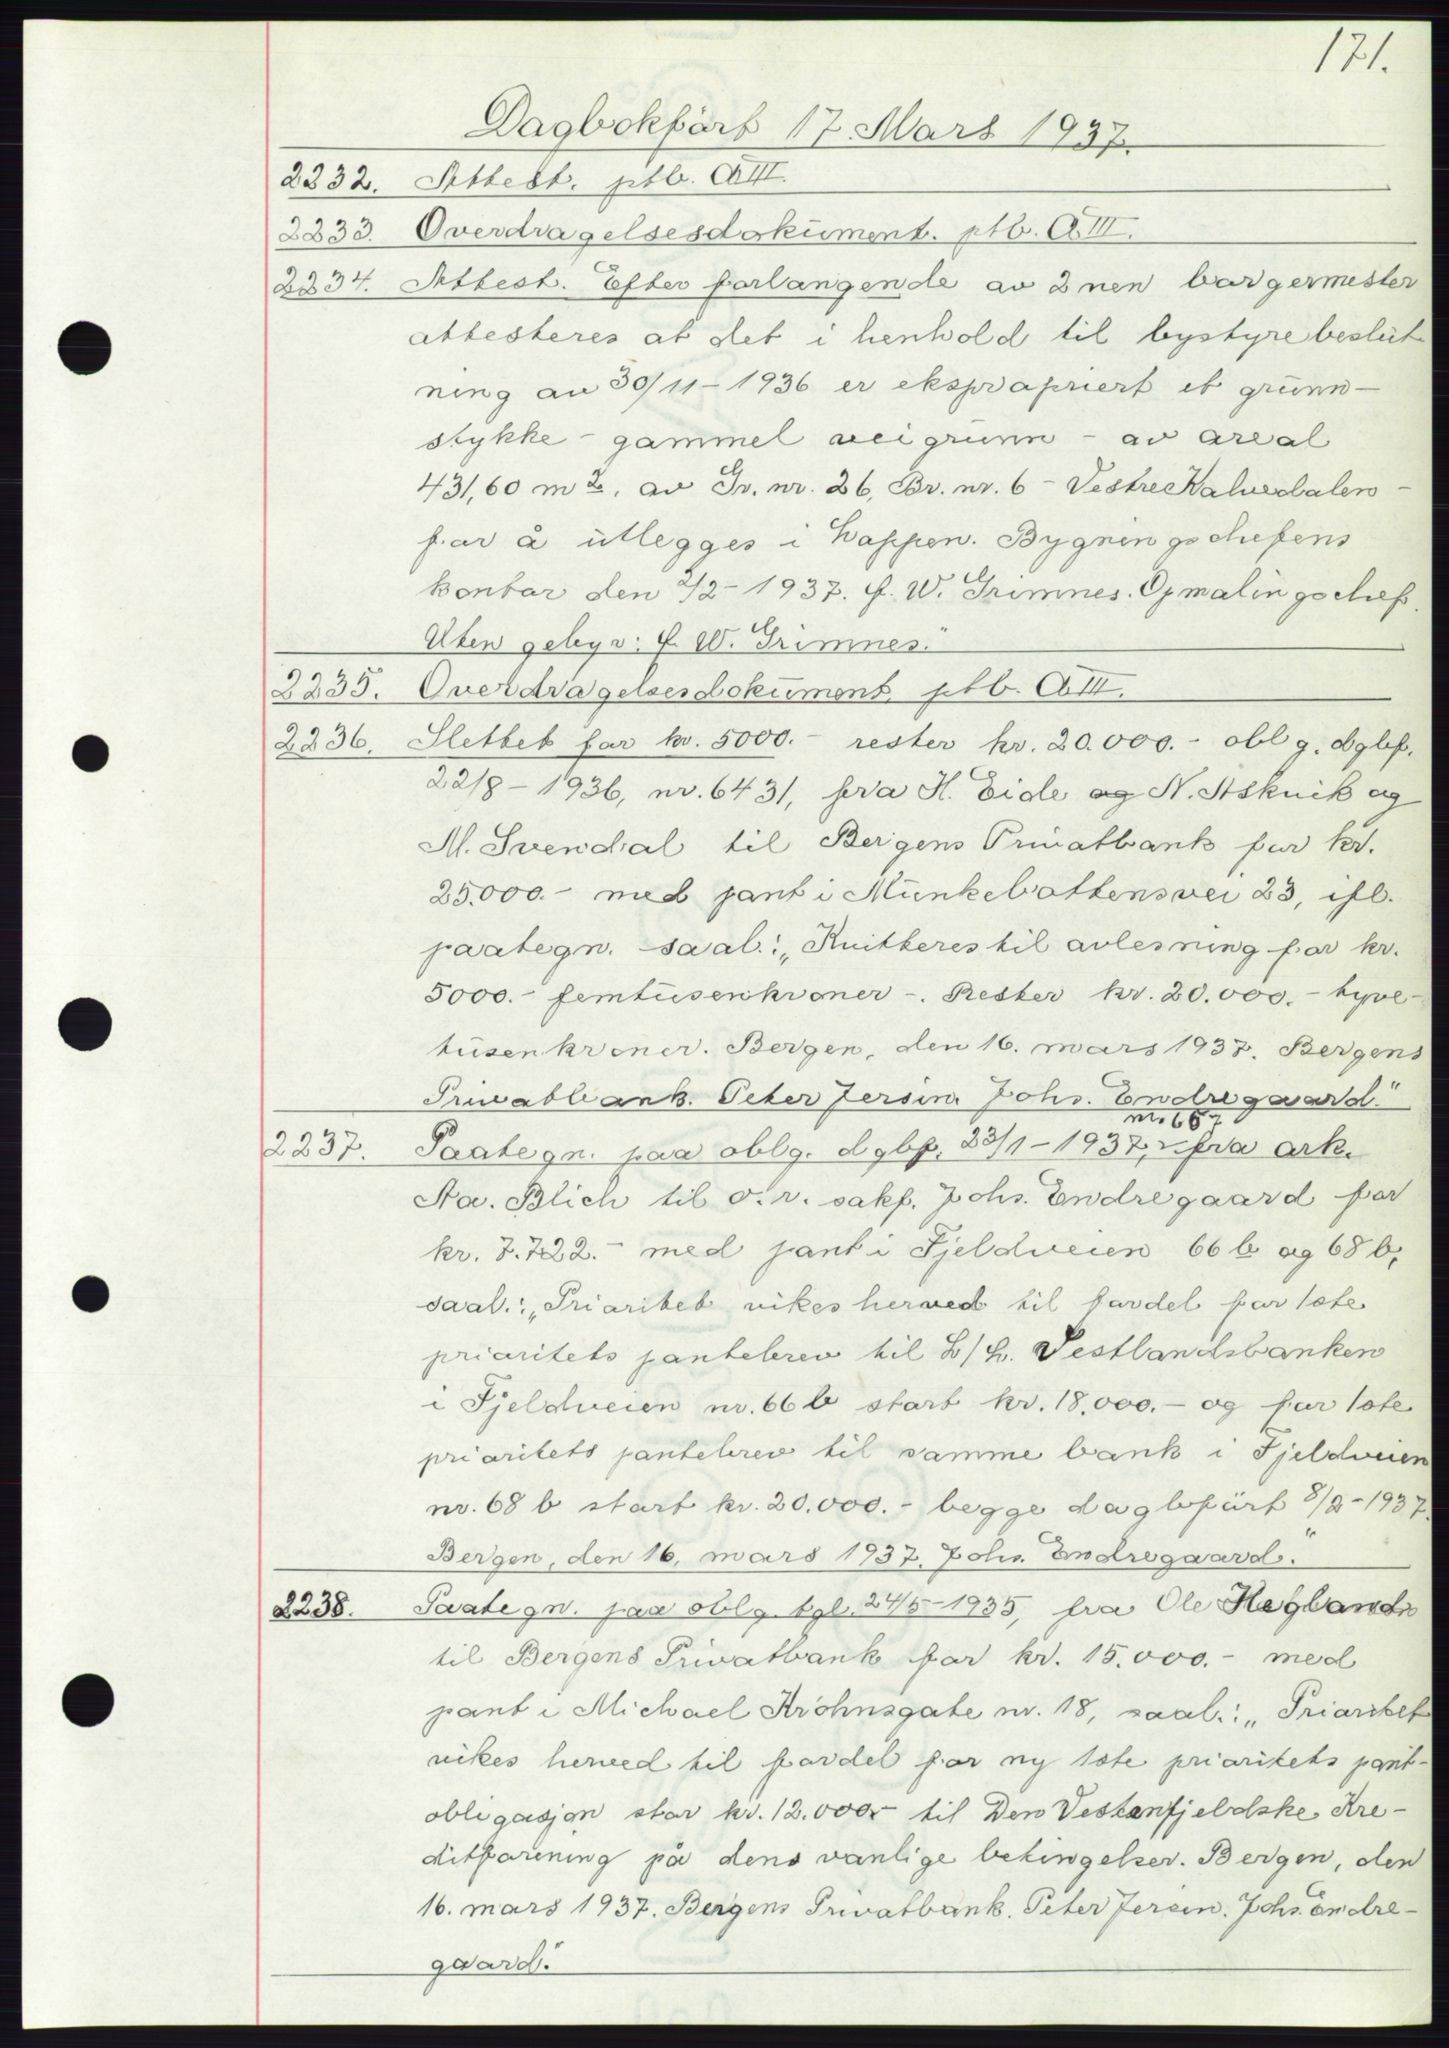 171.
Dagbokført 17 Mars 1937.
2232. Attest. ptb. A III.
2233. Overdragelsesdokument. ptb. A III.
2234. Attest. Efter forlangende av 2 nen borgermester
attesteres at det i henhold til bystyrebeslut-
ning av 30/11-1936 er ekspropriert et grunn-
stykke - gammel veigrunn - av areal
431,60 m2. av Gr. nr. 26, Br. nr. 6 - Vestre Kalvedalen -
for å utlegges i Bygningschefens
kontor den 2/2-1937. f. W. Grimnes. Opmålingschef.
Uten gebyr: f. W. Grimnes."
2235. Overdragelsesdokument ptb. A III.
2236. Slettet for kr. 5000.- rester kr. 20.000.- oblg. dgbf.
22/8-1936, nr. 6431, fra H. Eide og N. Askvik og
M. Svendal til Bergens Privatbank for kr.
25.000.- med pant i Munkebottensvei 23, ifl.
paategn. saal.: „Kvitteres til avlesning for kr.
5000.- femtusenkroner -. Rester kr. 20.000.- tyve-
tusenkroner. Bergen, den 16. mars 1937. Bergens
Privatbank. Peter Jersin. Johs. Endregaard."
2237. Paategn. paa oblg. dgbf. 23/1-1937, nr. 667 fra ark.
Aa. Blich til o.r. sakf. Johs. Endregaard for
kr. 7.722.- med pant i Fjeldveien 66 b og 68 b,
saal.: „Prioritet vikes herved til fordel for 1ste
prioritets pantebrev til L/L. Vestlandsbanken
i Fjeldveien nr. 66 b stort kr. 18.000.- og for 1ste
prioritets pantebrev til samme bank i Fjeldveien
nr. 68 b stort kr. 20.000.- begge dagbført 8/2-1937.
Bergen, den 16. mars 1937. Johs. Endregaard."
2238. Paategn. paa oblg. tgl. 24/5-1935, fra Ole Hegland
til Bergens Privatbank for kr. 15.000.- med
pant i Michael Krohnsgate nr. 18, saal.: „Prioritet
vikes herved til fordel for ny 1ste prioritets pant-
obligasjon stor kr. 12.000.- til Den Vestenfjeldske Kre-
ditforening på dens vanlige betingelser. Bergen, den
16. mars 1937. Bergens Privatbank. Peter Jersin. Johs. Endre-
gaard."